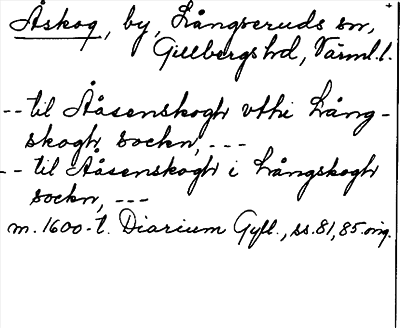 Åskog, by, Långseruds sn,
Gillbergs hd, Värml. l.
-- til Ååsenskogh vthi Lång-
skogh sockn, ---
-- til Ååsenskogh i Långskogh
sockn, ---
m. 1600-t. Diarium Gyll., ss. 81, 85. orig.